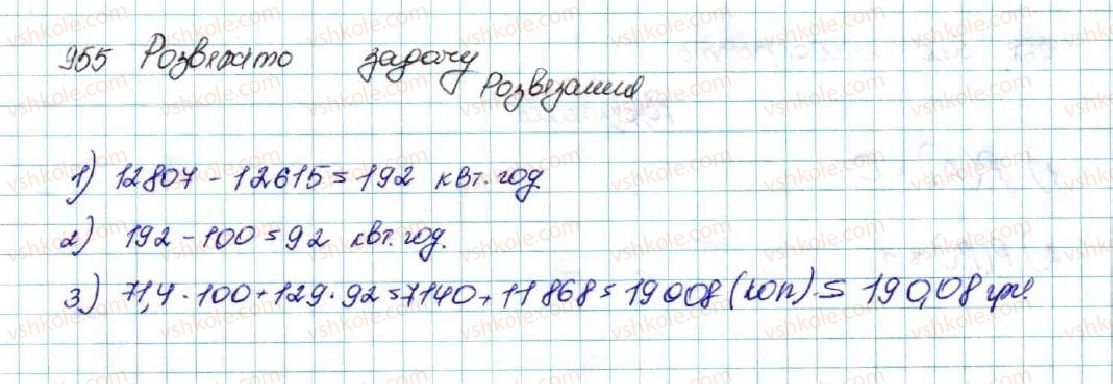 955 Розвяжіто задачу
Розвязання
1) 12807 - 12615 = 192 квт.год
2) 192 - 100 = 92 квт.год.
3) 71,4 · 100 + 129 · 92 = 7140 + 11868 = 19008 (коп) = 190,08 грн.